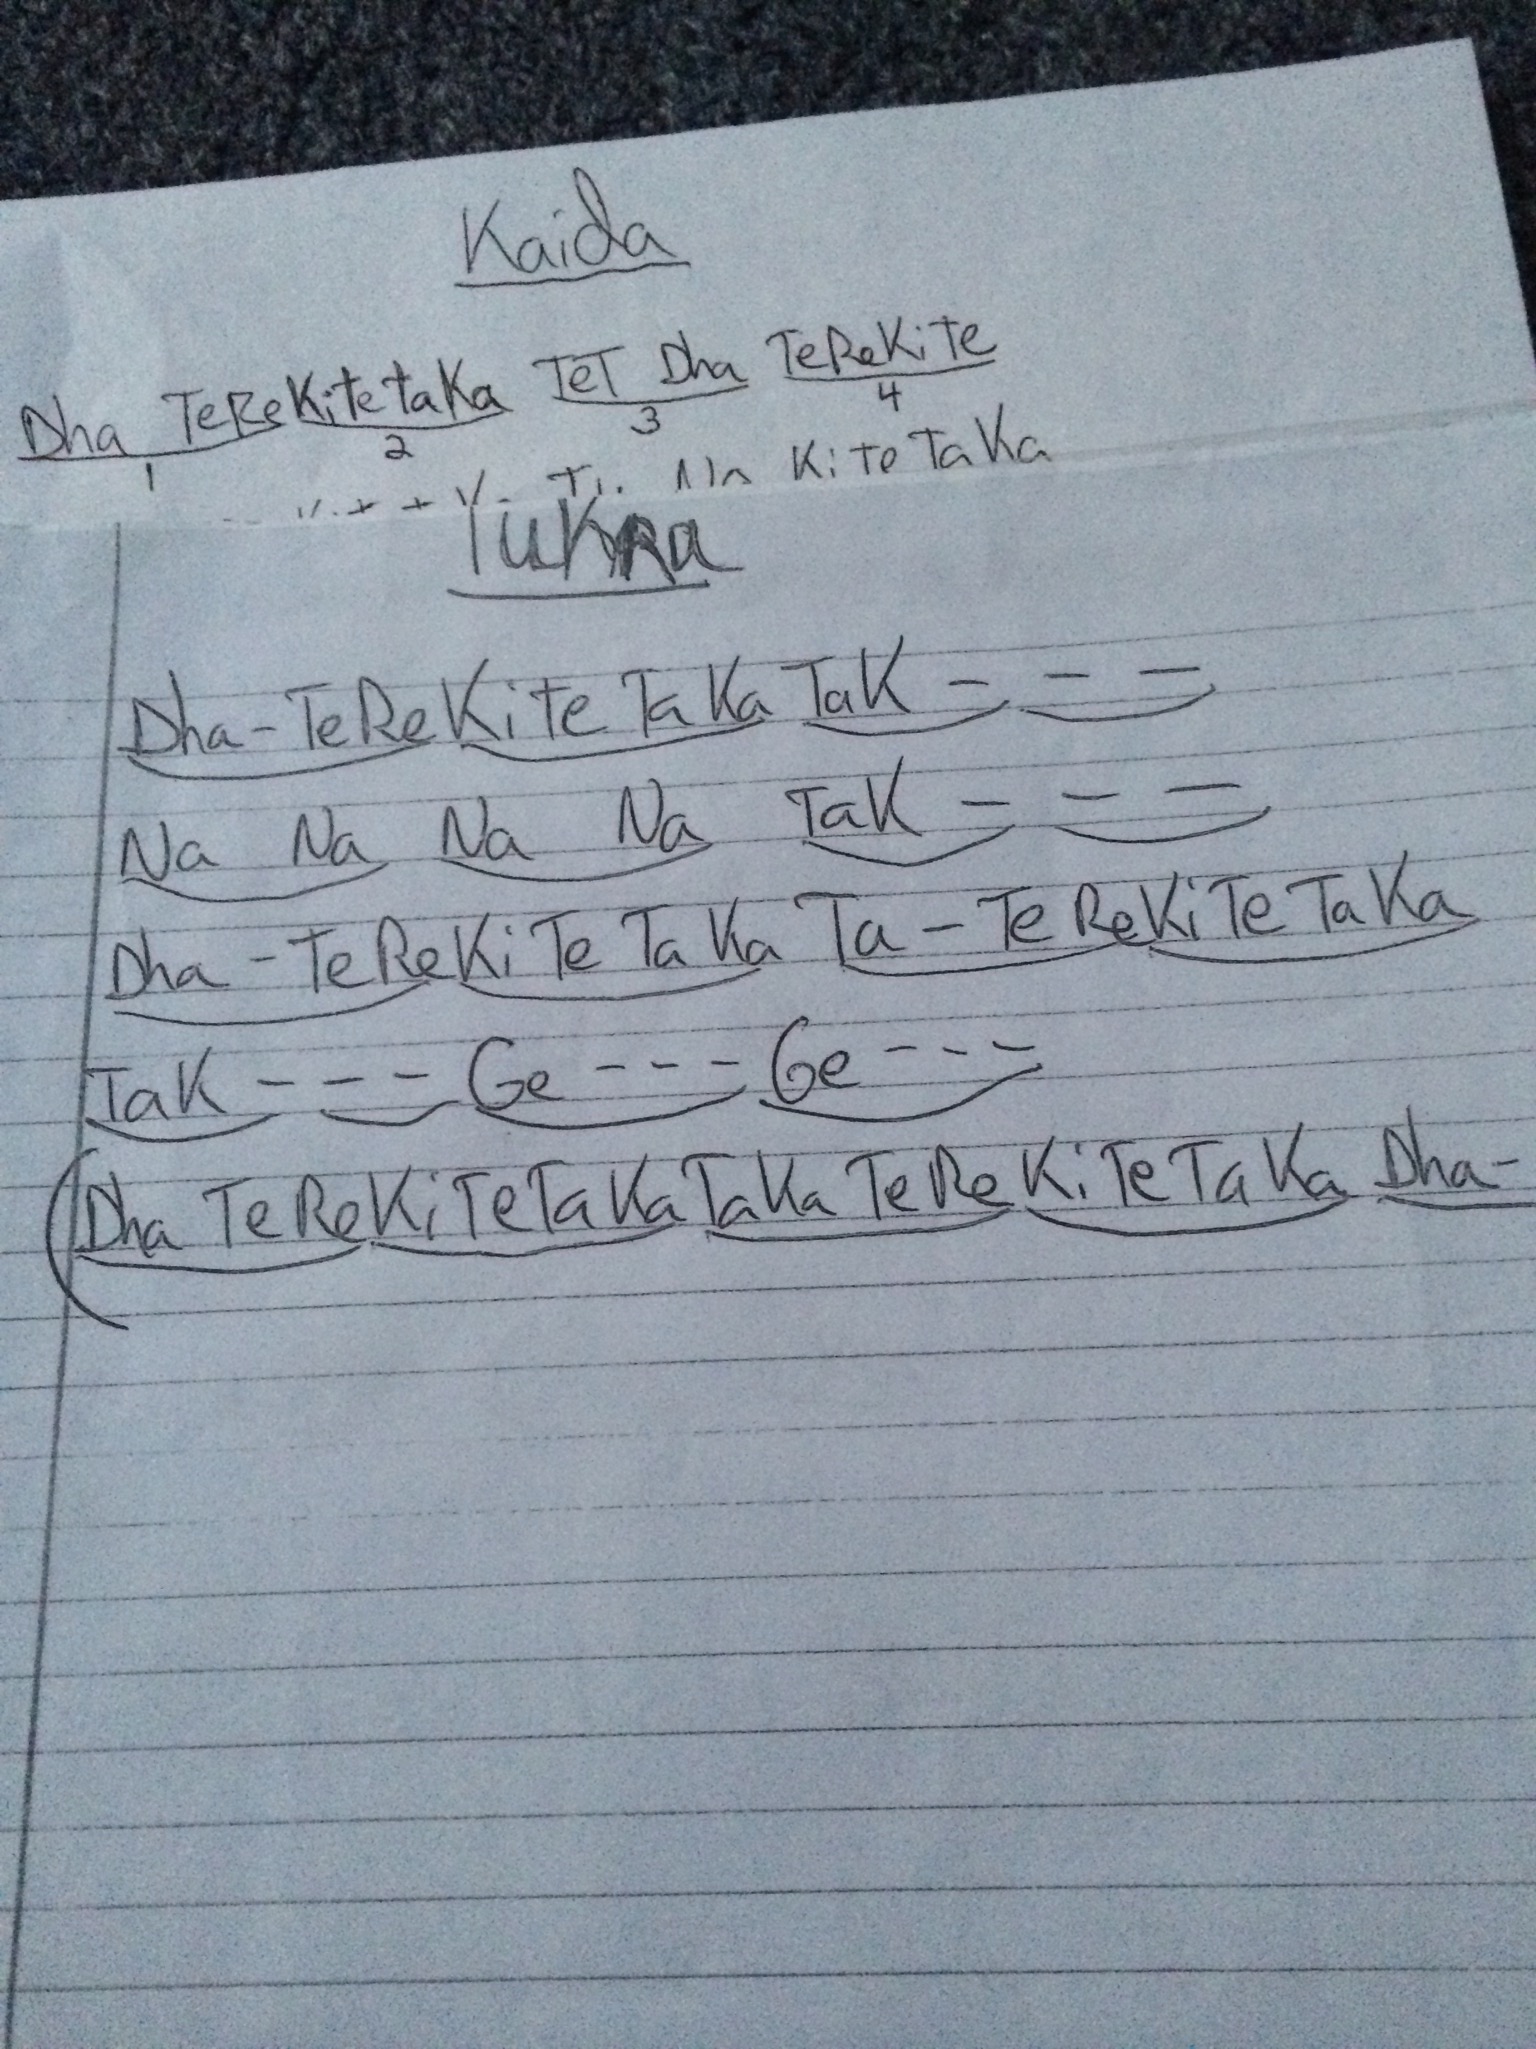 Kaida
Dha TeReKitetaKa TeT Dha TeReKite
1 2 3 4
Na KiTe TaKa
TuKRa
Dha-TeReKite TaKa TaK - - -
Na Na Na Na TaK - - -
Dha-TeReKiTe TaKa Ta-TeReKiTe TaKa
TaK - - - Ge - - - Ge - - -
(Dha TeReKiTeTaKaTaKa TeReKiTeTaKa Dha-